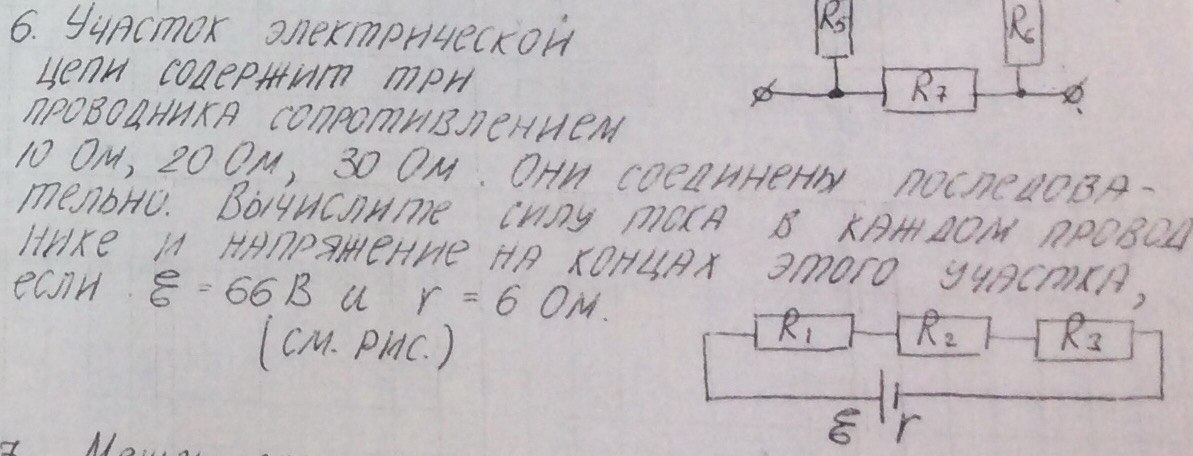 R5
R6
R7
6. Участок электрической
цепи содержит три
проводника сопротивлением
10 Ом, 20 Ом, 30 Ом. Они соединены последова-
тельно. Вычислите силу тока в каждом провод
нике и напряжение на концах этого участка,
если ℰ = 66 В и r = 6 Ом.
(см. рис.)
R1 R2 R3
ℰ r
7